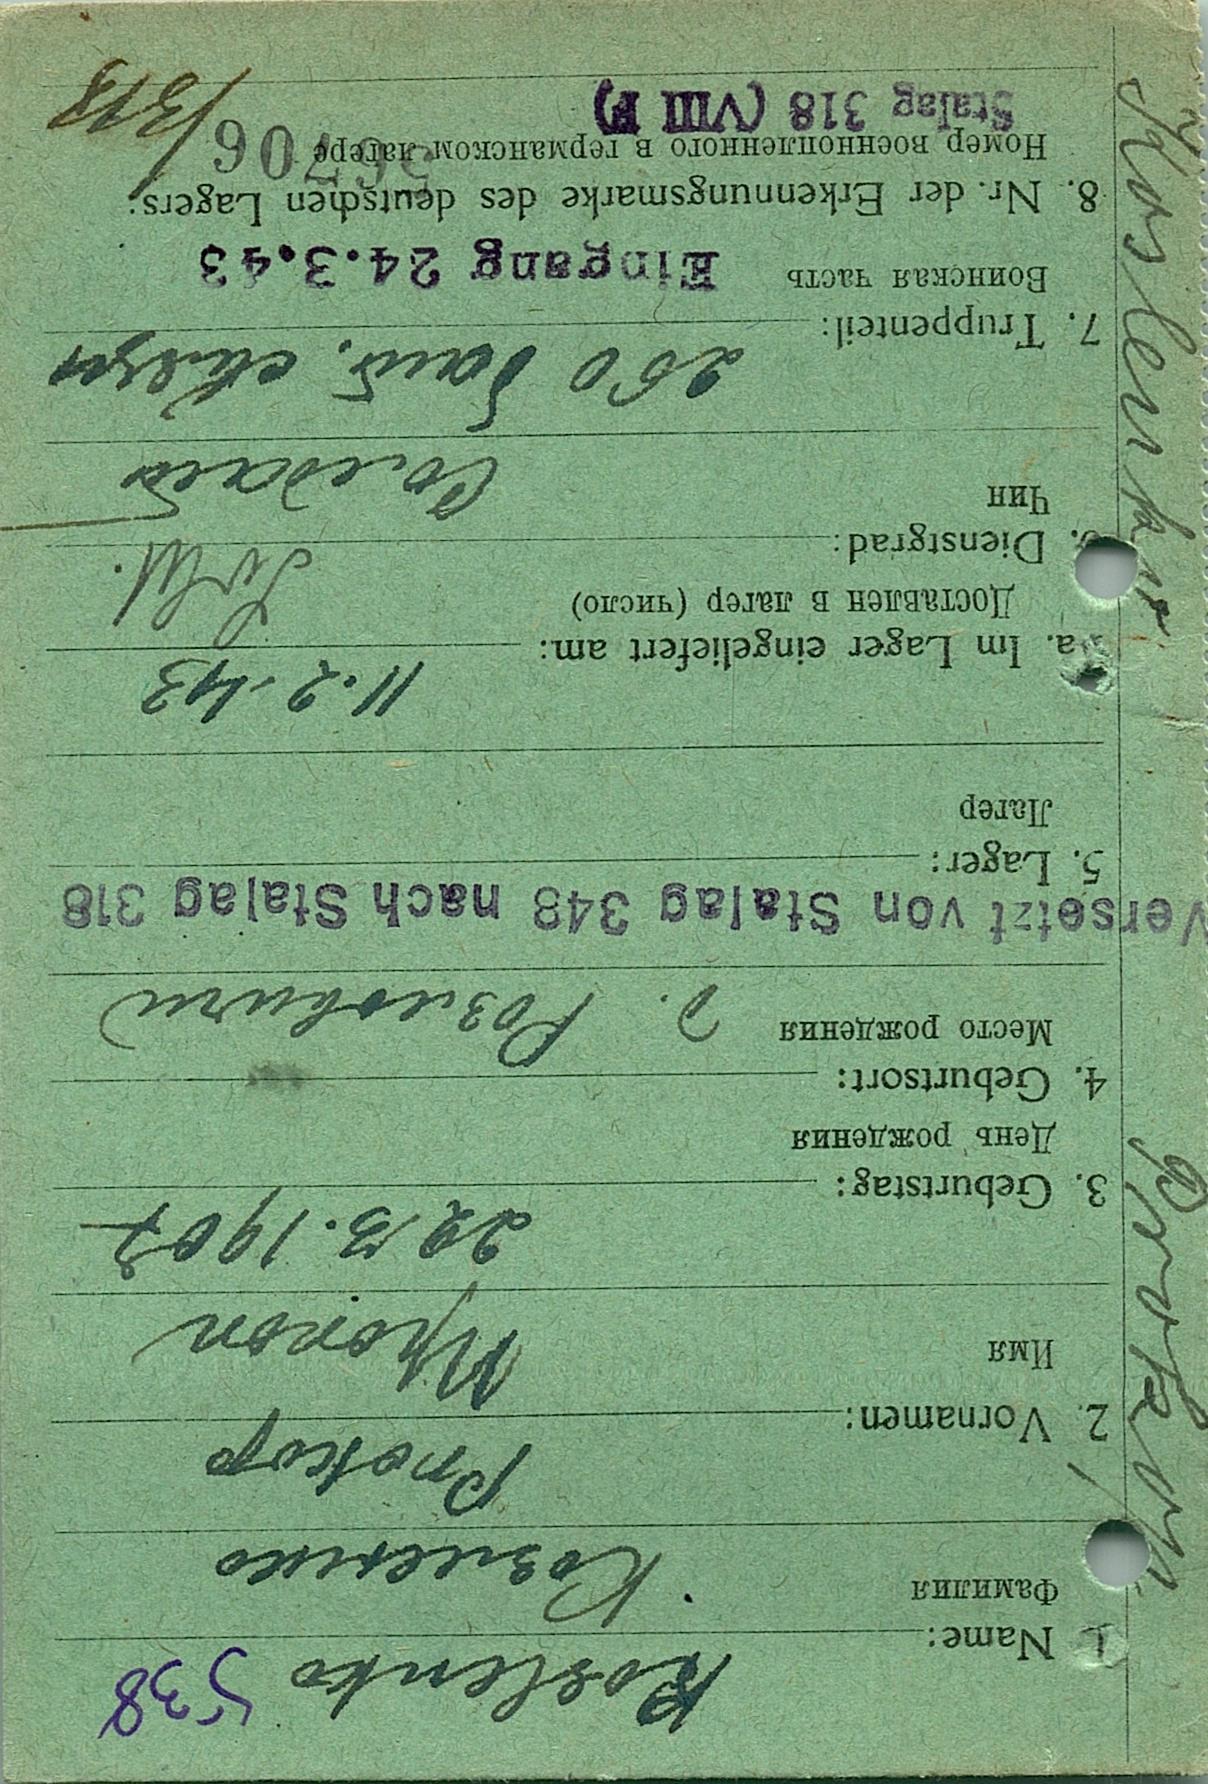 538
Koslenko
1. Name:
Фамилия
Козленко
Prokop
2. Vornamen:
Имя
Прокоп
22.3.1907
3. Geburtstag:
День рождения
4. Geburtsort:
Место рождения
д.
Versetzt von Stalag 348 nach Stalag 318
5. Lager:
Лагер
11.2.43
5a. Im Lager eingeliefert am:
Доставлен в лагер (число)
Sold.
6. Dienstgrad:
Чин
Солдат
250
7. Truppenteil:
Воинская часть
Eingang 24.3.43
8. Nr. der Erkennungsmarke des deutschen Lagers:
Номер военнопленного в германском лагере
56706
/318
Stalag 318 (VIII F)
Koslenko
Prokop